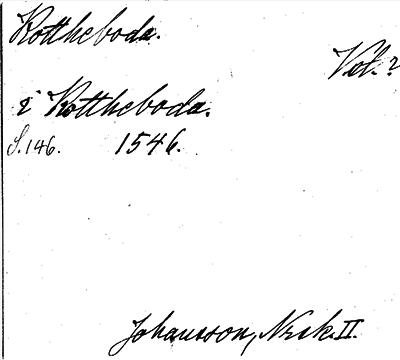 Kottheboda.
Vol. ?
i Kottheboda.
S. 146. 1546.
Johansson, Nrsk. II.